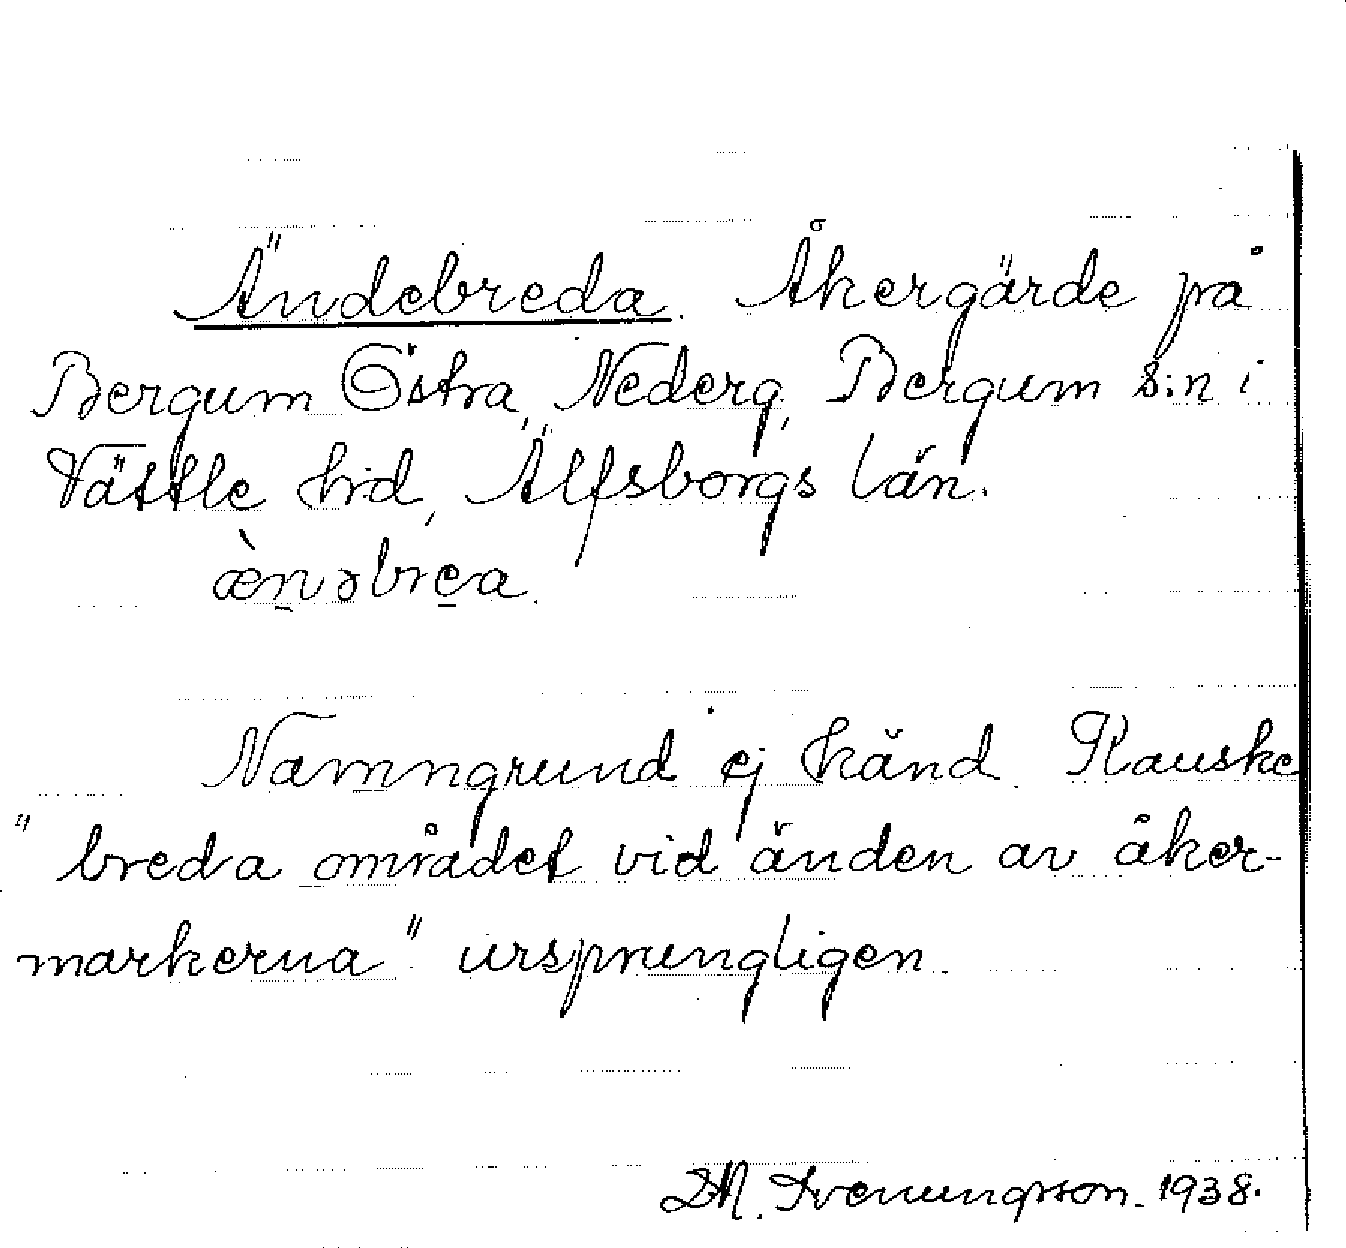 Ändebreda. Åkergärde på
Bergum Östra, Nederg, Bergum s:n i
Vättle hrd, Älfsborgs län.
æ̀nəbrea.
Namngrund ej känd. Kanske
"breda området vid änden av åker-
markerna" ursprungligen.
Svenungsson. 1938.